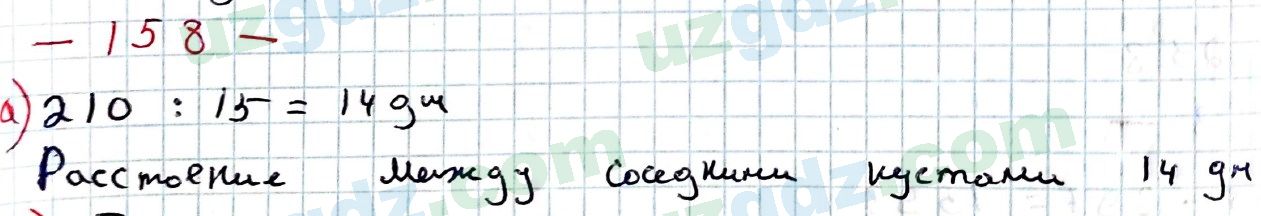 — 158 —
а) 210 : 15 = 14 дм
Расстоение между соседними кустами 14 дм